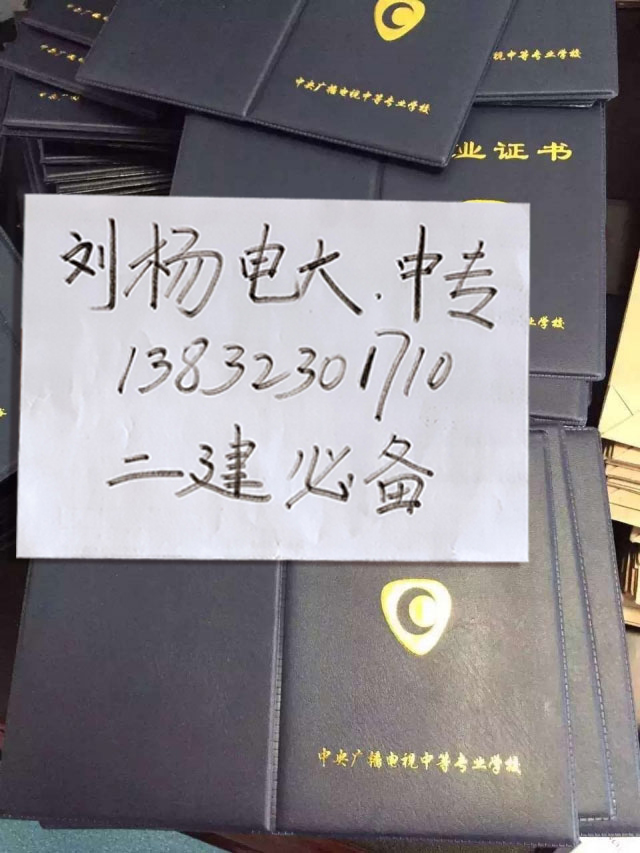 中央广播电视中等专业学校
视中等专业学校
中央广播
业证书
业学校
刘杨电大.中专
13832301710
二建必备
中央广播电视中等专业学校